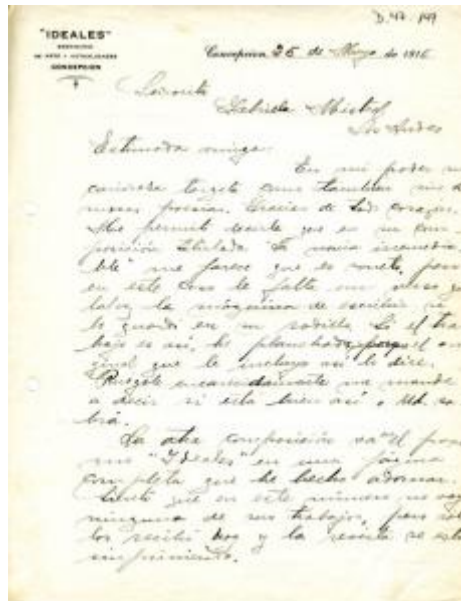 "IDEALES"
CONCEPCION
Concepcion 25 de Mayo de 1915
Señorita
Gabriela Mistral
Los Andes
Estimada amiga:
En mi poder su
cariñosa targeta como tambien sus
poesias. Gracias de todo corazon.
Me permito decirle que en su com-
posición titulada "La
ble" me parece que es soneto, pero
en este caso le falta un verso que
talvez la máquina de escribir se
lo guardó en su rodillo. Si el tra
bajo es así, he planchado porque el ori
ginal que le incluyo así lo dice.
Ruégole encarecidamente me mande
a decir si está bien así o Ud. sa
brá.
La otra composición va en el próxi
mo "Ideales" en una página
completa que he hecho adornar.
Sentí que en este número no vaya
ninguno de sus trabajos, pero solo
los recibí hoy y la revista se está
imprimiendo.